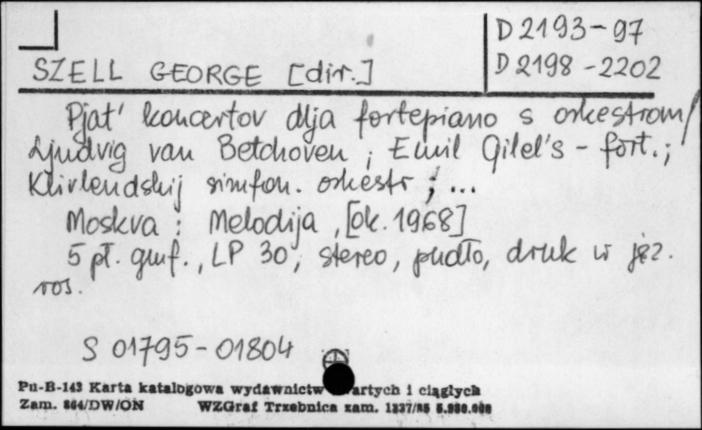 D 2193-97
SZELL GEORGE [dir.]
D 2198-2202
Pjat' koncertov dlja fortepiano s orkestrom /
Ljudvig van Betchoven ; Emil Gilel's - fort. ;
Klivlendskij simfon. orkestr ; ...
Moskva : Melodija , [ok. 1968]
5 pł. gmf. , LP 30 , stereo , pudło , druk w jęz.
ros.
S 01795-01804
Pu-B-143 Karta katalogowa wydawnictw artych i ciągłych
Zam. 864/DW/ON WZGraf Trzebnica zam.